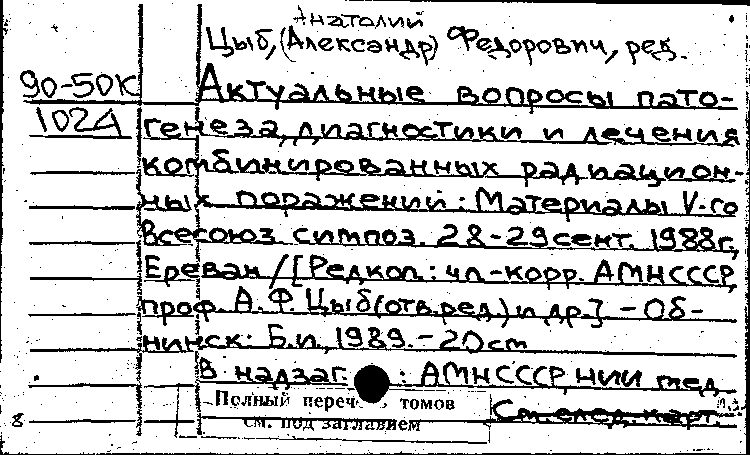 Анатолий
Цыб, (Александр) Федорович, ред.
90-50К Актуальные вопросы пато-
1024 генеза, диагностики и лечения
комбинированных радиацион-
ных поражений: Материалы V-го
Всесоюз. симпоз. 28-29 сент. 1988г.,
Ереван / [Редкол.: чл.-корр. АМНСССР,
проф. А. Ф. Цыб (отв. ред.) и др.] - Об-
нинск: Б.и., 1989. - 20 cm
В надзаг. : АМНСССР, НИИ мед.
Полный переч томов
См. след. карт.
см. под заглавием
8